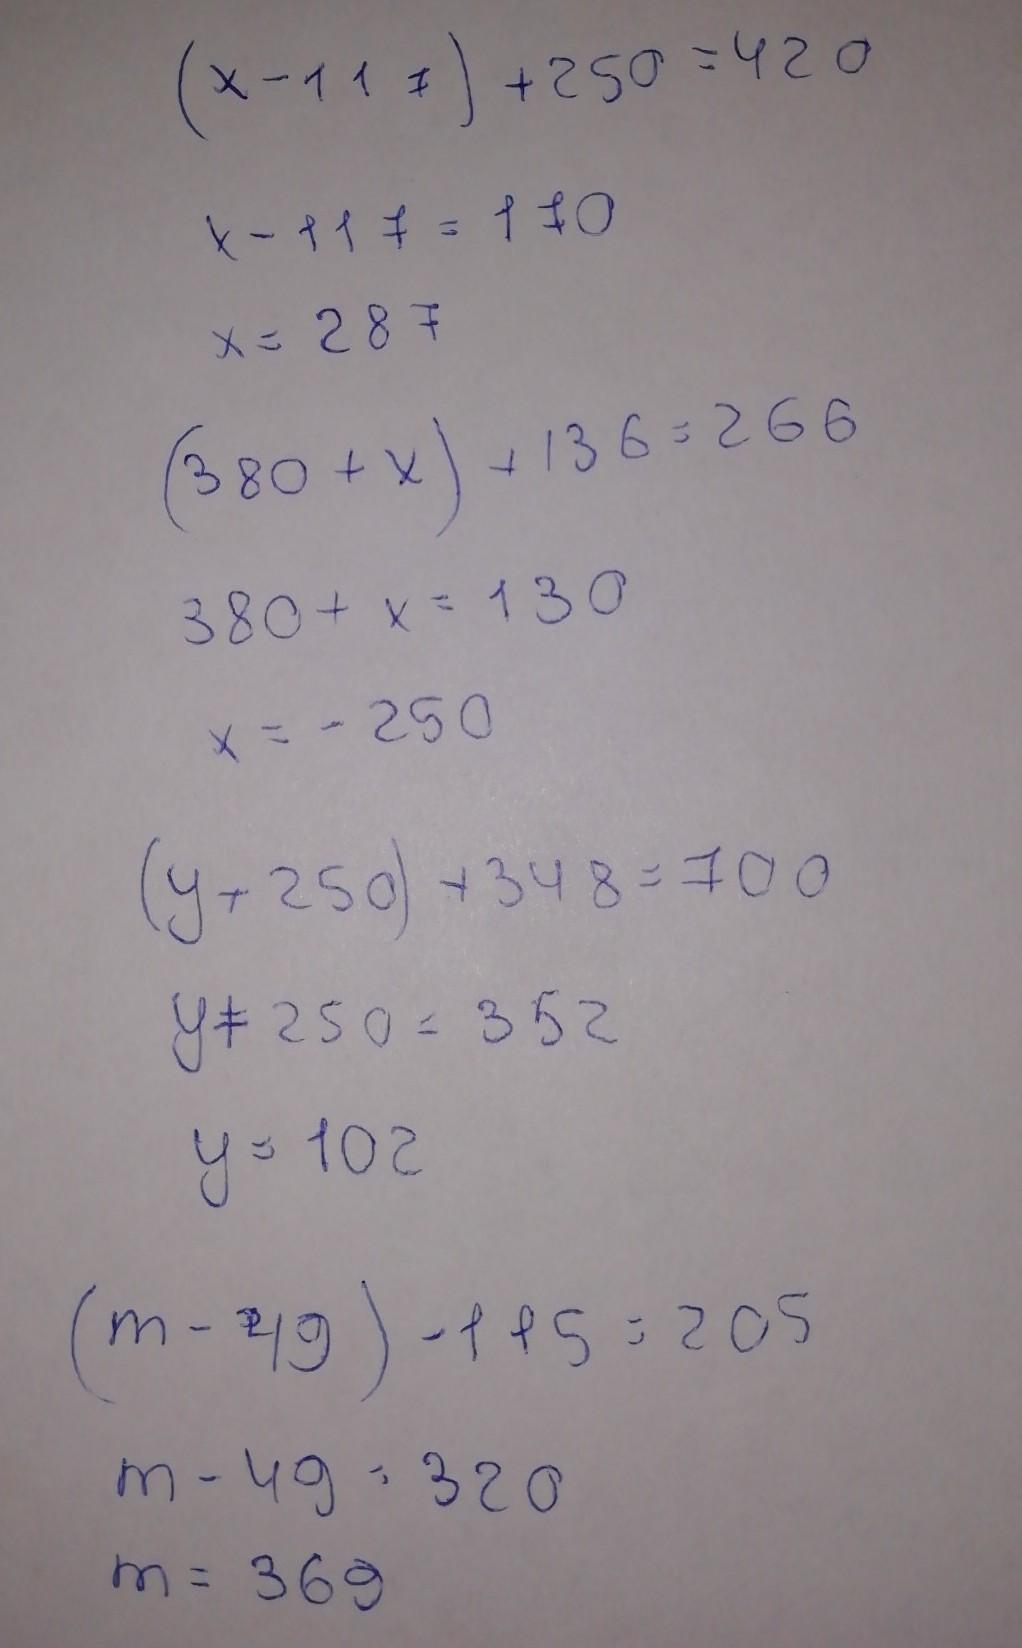 (x-117)+250=420
x-117=170
x=287
(380+x)+136=266
380+x=130
x=-250
(y+250)+348=700
y+250=352
y=102
(m-49)-115=205
m-49=320
m=369